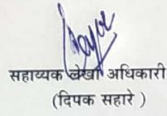 सहाय्यक लेखा अधिकारी
(दिपक सहारे )